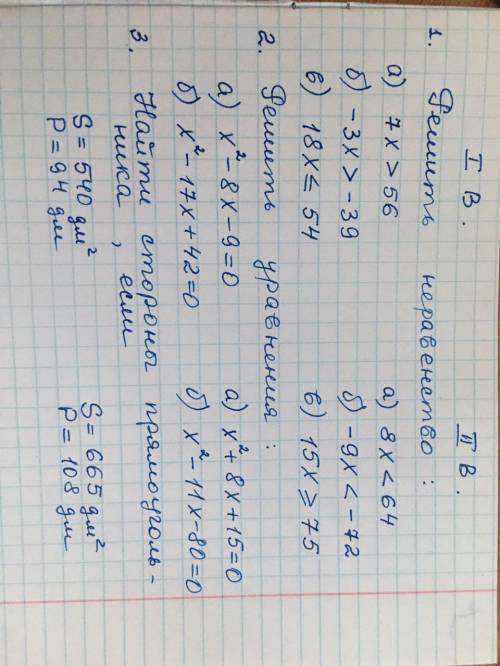 I В. II В.
1. Решить неравенство:
а) 7x > 56 а) 8x < 64
б) -3x > -39 б) -9x < -72
в) 18x ≤ 54 в) 15x ≥ 75
2. Решить уравнения:
а) x² - 8x - 9 = 0 а) x² + 8x + 15 = 0
б) x² - 17x + 42 = 0 б) x² - 11x - 80 = 0
3. Найти стороны прямоуголь-
ника, если
S = 540 дм² S = 665 дм²
P = 94 дм P = 108 дм